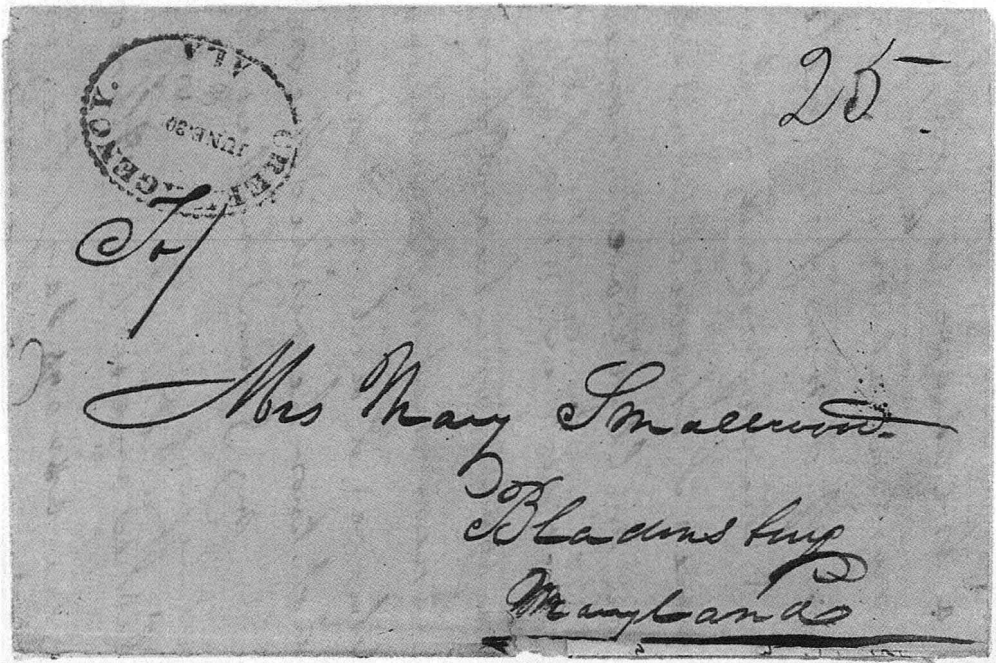 CREEK AGENCY.
ALA
JUNE.30
25
To/
Mrs Mary Smallwood.
Bladensburg
Maryland